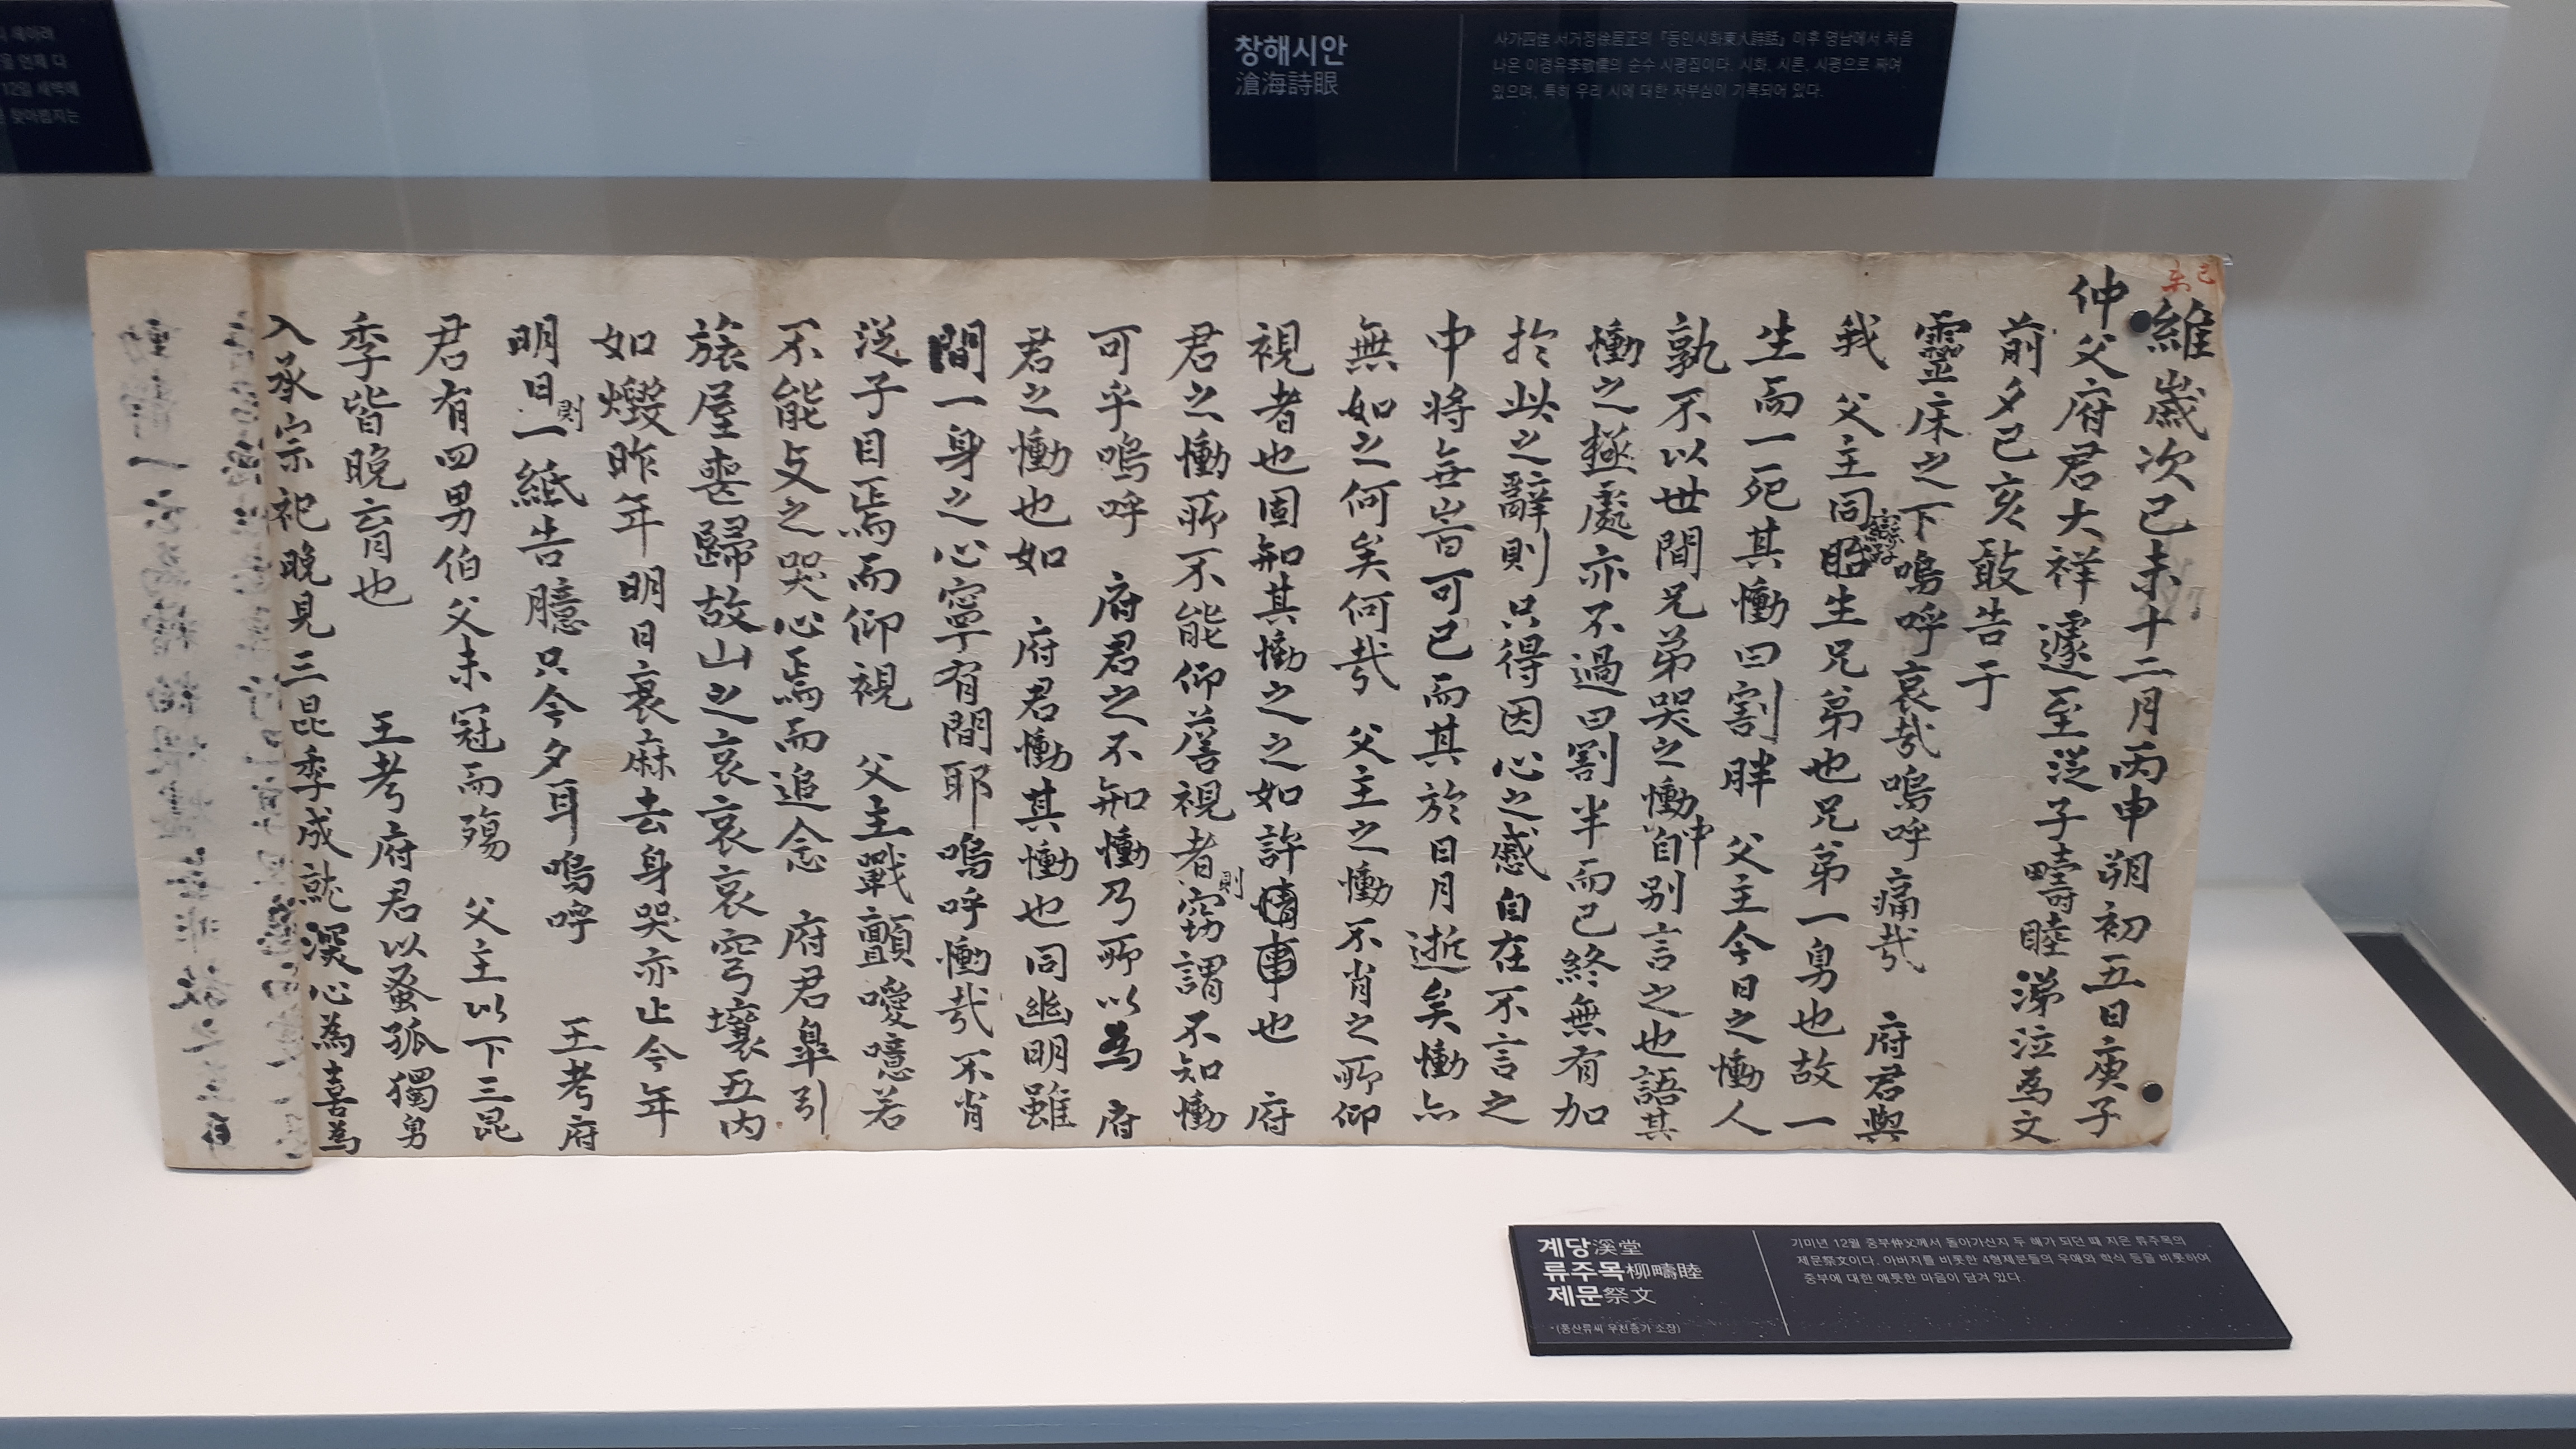 창해시안
滄海詩眼
사가四佳 서거정徐居正의 『동인시화東人詩話』 이후 영남에서 처음
나온 이경유李敬儒의 순수 시평집이다. 시화, 시론, 시평으로 짜여
있으며, 특히 우리 시에 대한 자부심이 기록되어 있다.
세아려
을 언제 다
12일 새벽에
찾아뵙지는
己未
維歲次己未十二月丙申朔初五日庚子
仲父府君大祥遽至從子疇睦涕泣爲文
前夕己亥敢告于
靈床之下嗚呼哀哉嗚呼痛哉 府君與
我 父主同胎生兄弟也兄弟一身也故一
生而一死其慟曰割胖 父主今日之慟人
孰不以世間兄弟哭之慟自別言之也語其
慟之極處亦不過曰割半而已終無有加
於此之辭則只得因心之慼自在不言之
中將無言可已而其於日月逝矣慟亦
無如之何矣何哉 父主之慟不肖之所仰
視者也固知其慟之之如許也 府
君之慟所不能仰 視者則竊謂不知慟
可乎嗚呼 府君之不知慟乃所以爲 府
君之慟也如 府君慟其慟也同幽明雖
間一身之心寧有間耶嗚呼慟哉不肖
從子目焉而仰視 父主戰顫噯噫若
不能支之哭心焉而追念 府君皐引
旅屋喪歸故山之哀哀哀穹壤五內
如燬昨年明日衰麻去身哭亦止今年
明日則一紙告臆只今夕耳嗚呼 王考府
君有四男伯父未冠而殤 父主以下三昆
季皆晩育也 王考府君以蚤孤獨身
入承宗祀晩見三昆季成就深心爲喜爲
계당溪堂
류주목柳疇睦
제문祭文
*(풍산류씨 우천종가 소장)
기미년 12월 중부仲父께서 돌아가신지 두 해가 되던 때 지은 류주목의
제문祭文이다. 아버지를 비롯한 4형제분들의 우애와 학식 등을 비롯하여
중부에 대한 애틋한 마음이 담겨 있다.